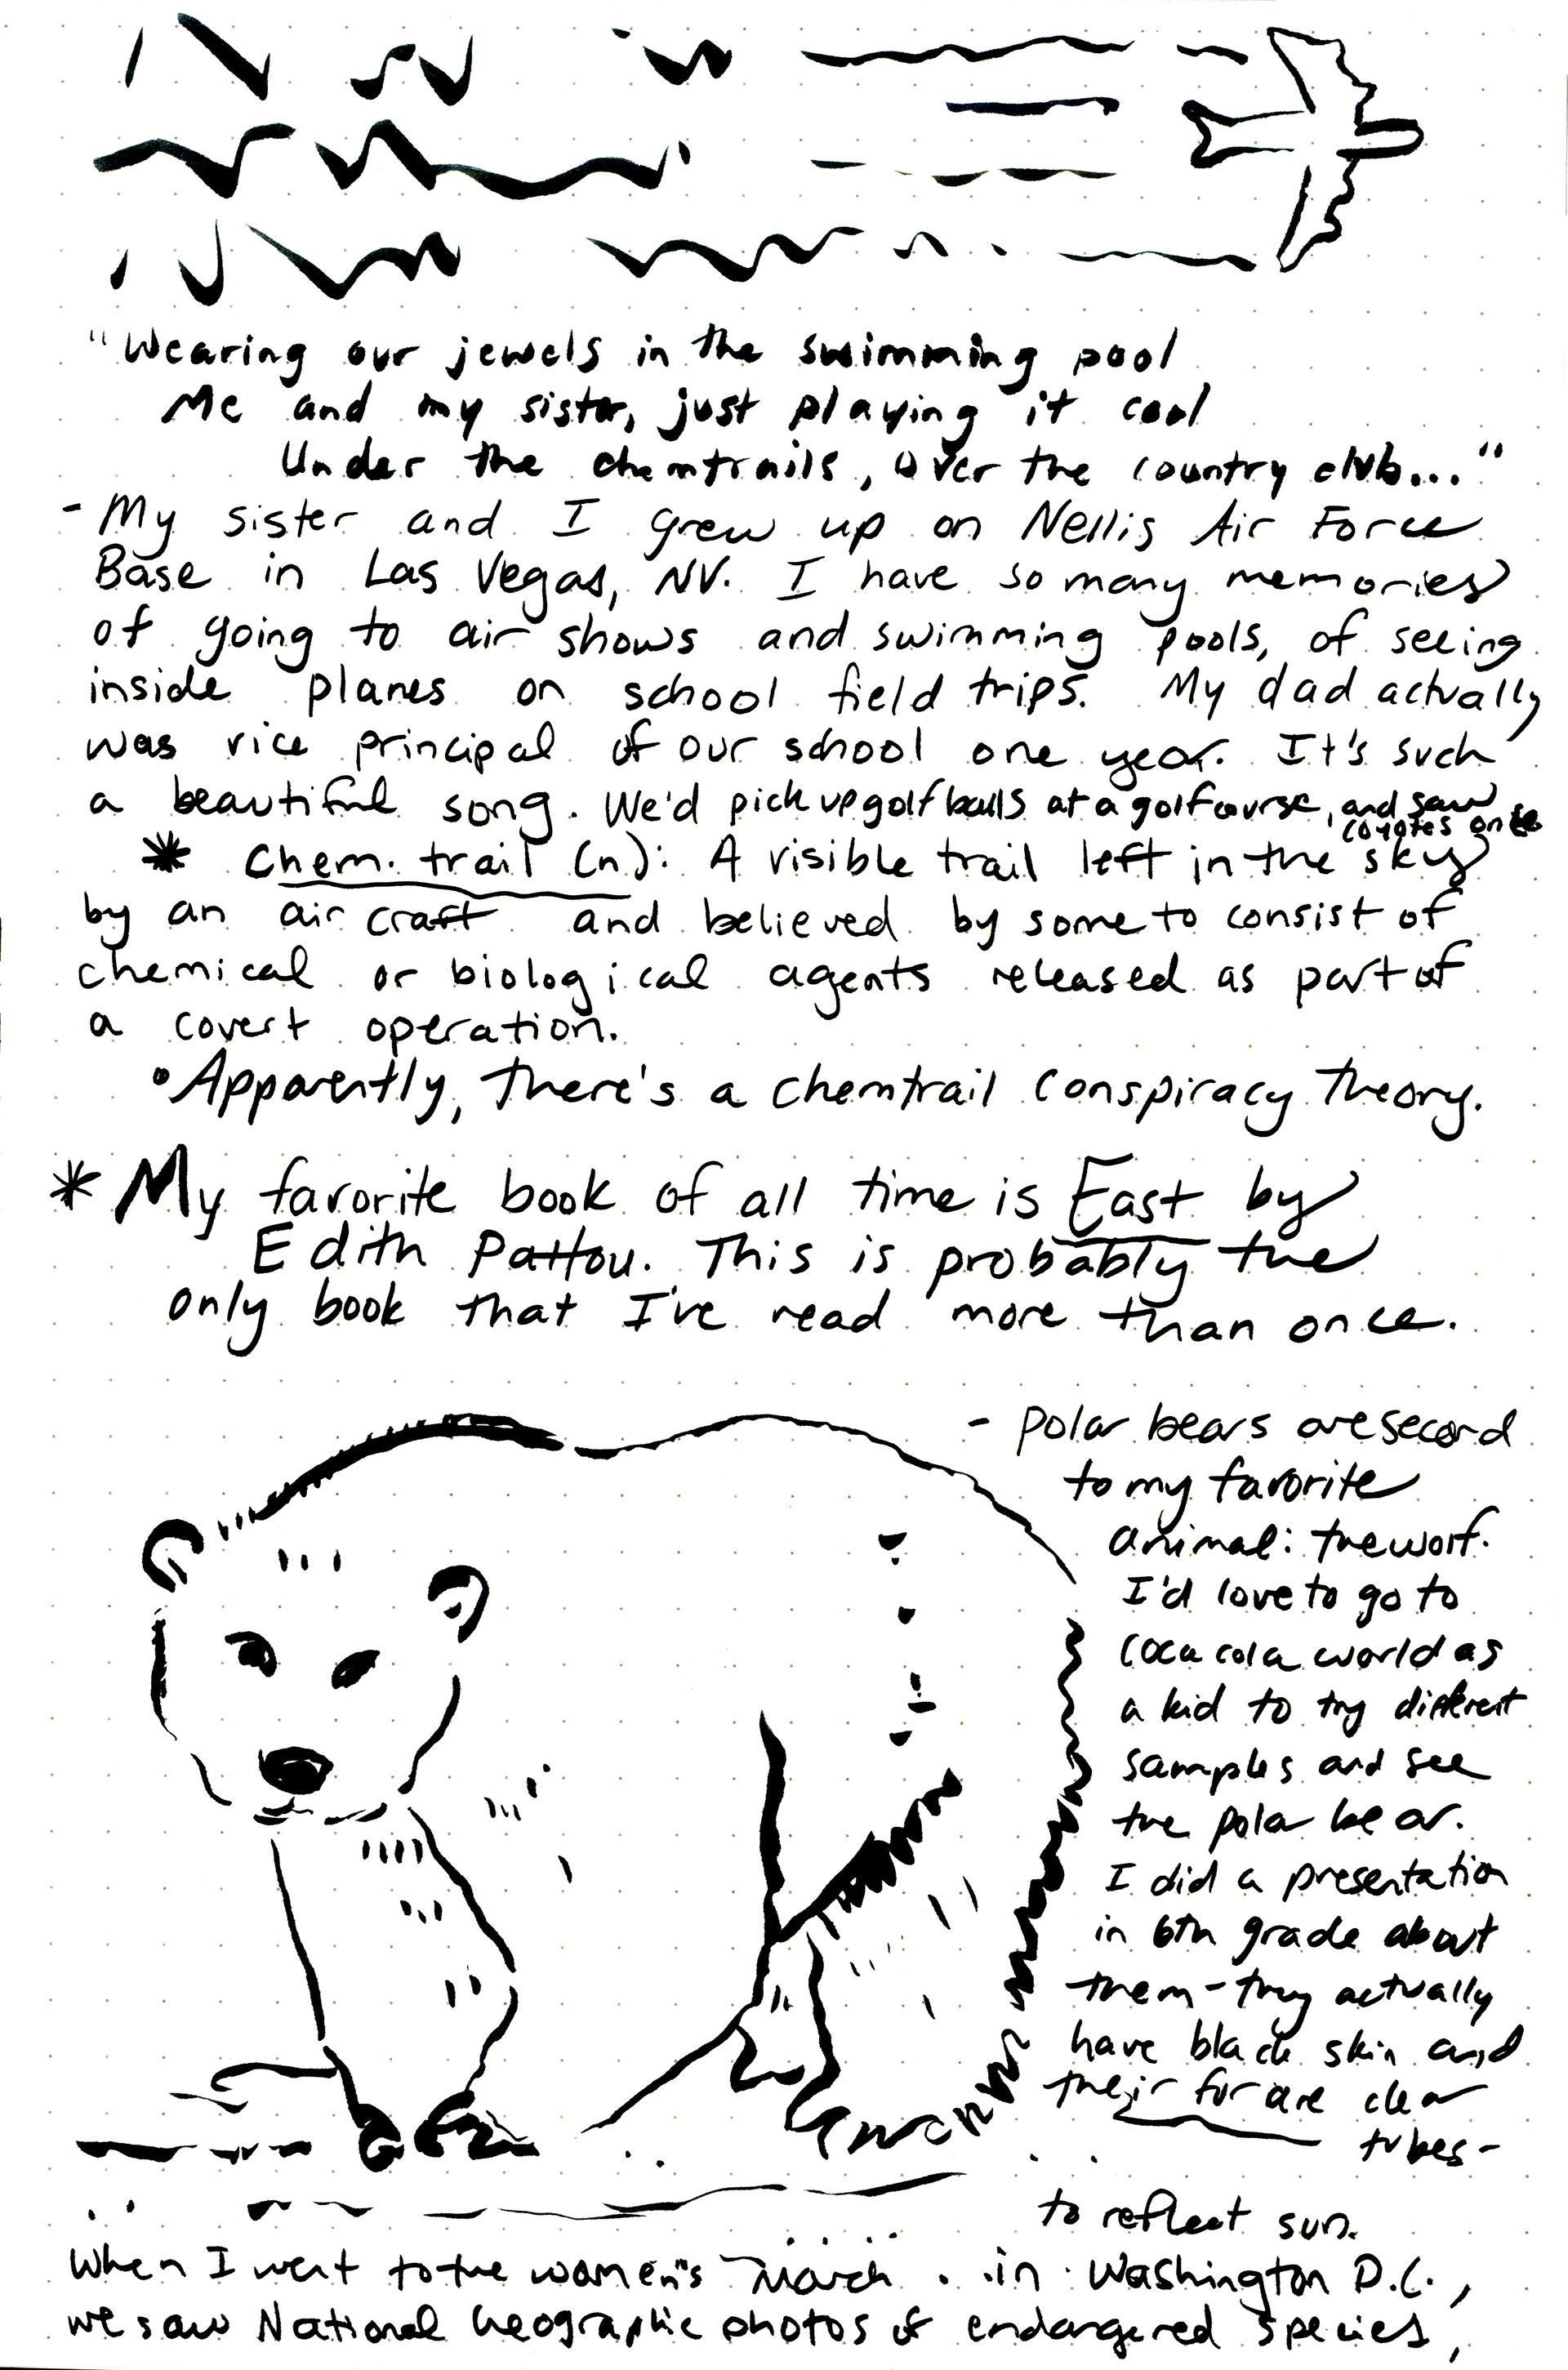 "Wearing our jewels in the swimming pool
Me and my sister, just playing it cool
Under the chemtrails, over the country club..."
- My sister and I grew up on Nellis Air Force
Base in Las Vegas, NV. I have so many memories
of going to air shows and swimming pools, of seeing
inside planes on school field trips. My dad actually
was vice principal of our school one year. It's such
a beautiful song. We'd pick up golf balls at a golf course, and saw
coyotes once
* Chem. trail (n): A visible trail left in the sky
by an air craft and believed by some to consist of
chemical or biological agents released as part of
a covert operation.
• Apparently, there's a chemtrail conspiracy theory.
* My favorite book of all time is East by
Edith Pattou. This is probably the
only book that I've read more than once.
- Polar bears are second
to my favorite
animal: the wolf.
I'd love to go to
Coca cola world as
a kid to try different
samples and see
the polar bear.
I did a presentation
in 6th grade about
them - they actually
have black skin and
their fur are clear
tubes-
to reflect sun.
When I went to the women's March in Washington D.C.,
we saw National Geographic photos of endangered species,